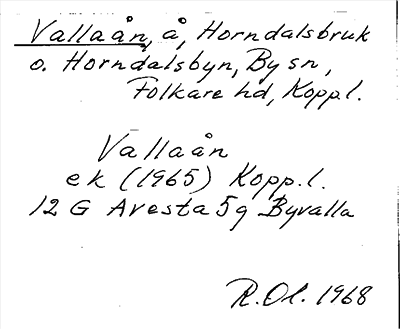 Vallaån, å, Horndalsbruk
o. Horndalsbyn, By sn,
Folkare hd, Kopp.l.
Vallaån
ek (1965) Kopp.l.
12 G Avesta 5g Byvalla
R.Ol. 1968